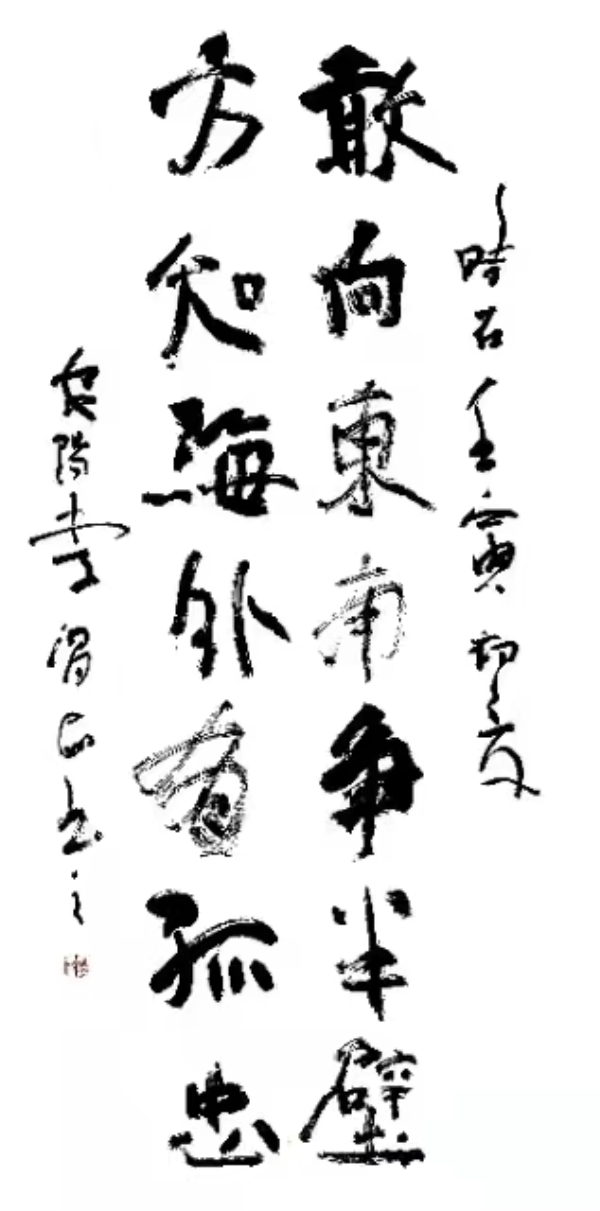 時在壬寅初夏
敢向東南争半壁
方知海外有孤忠
安陽李書之